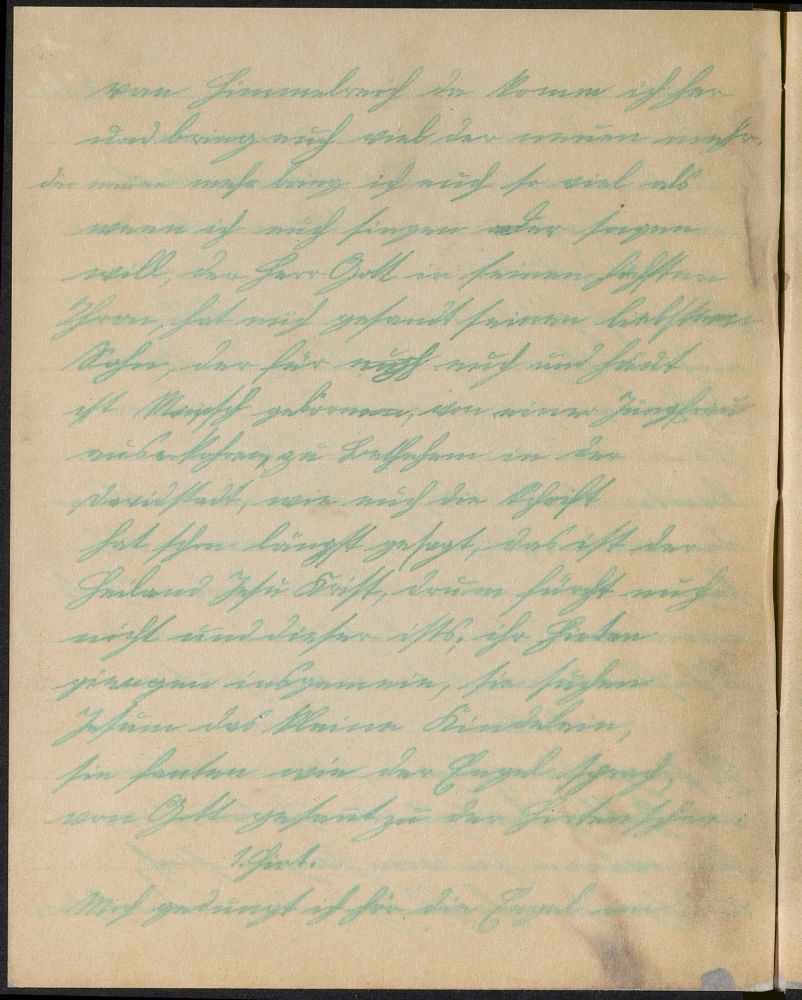 von Himmelreich da komm ich her
und bring euch viel der neuen mehr.
der neuen mehr bring ich euch so viel als
wenn ich euch singen oder sagen
will, der Herr Gott in seinen höchsten
Thron, hat mich gesandt seinen liebsten
Sohn, der für euch und heut
ist Mensch geboren, von einer Jungfrau
auserkohren, zu Bethlehem in der
Davidstadt, wie euch die Schrift
hat schon längst gesagt, das ist der
Heiland Jesu Krist, drum fürcht euch
nicht und dieser ists, ihr Hirten
giengen insgemein, sie suchen
Jesum das kleine Kindelein,
sie fanten wie der Engel sprach,
von Gott gesant zu der Hirten
1. Hirt.
Mich gedungt ich hör die Engel